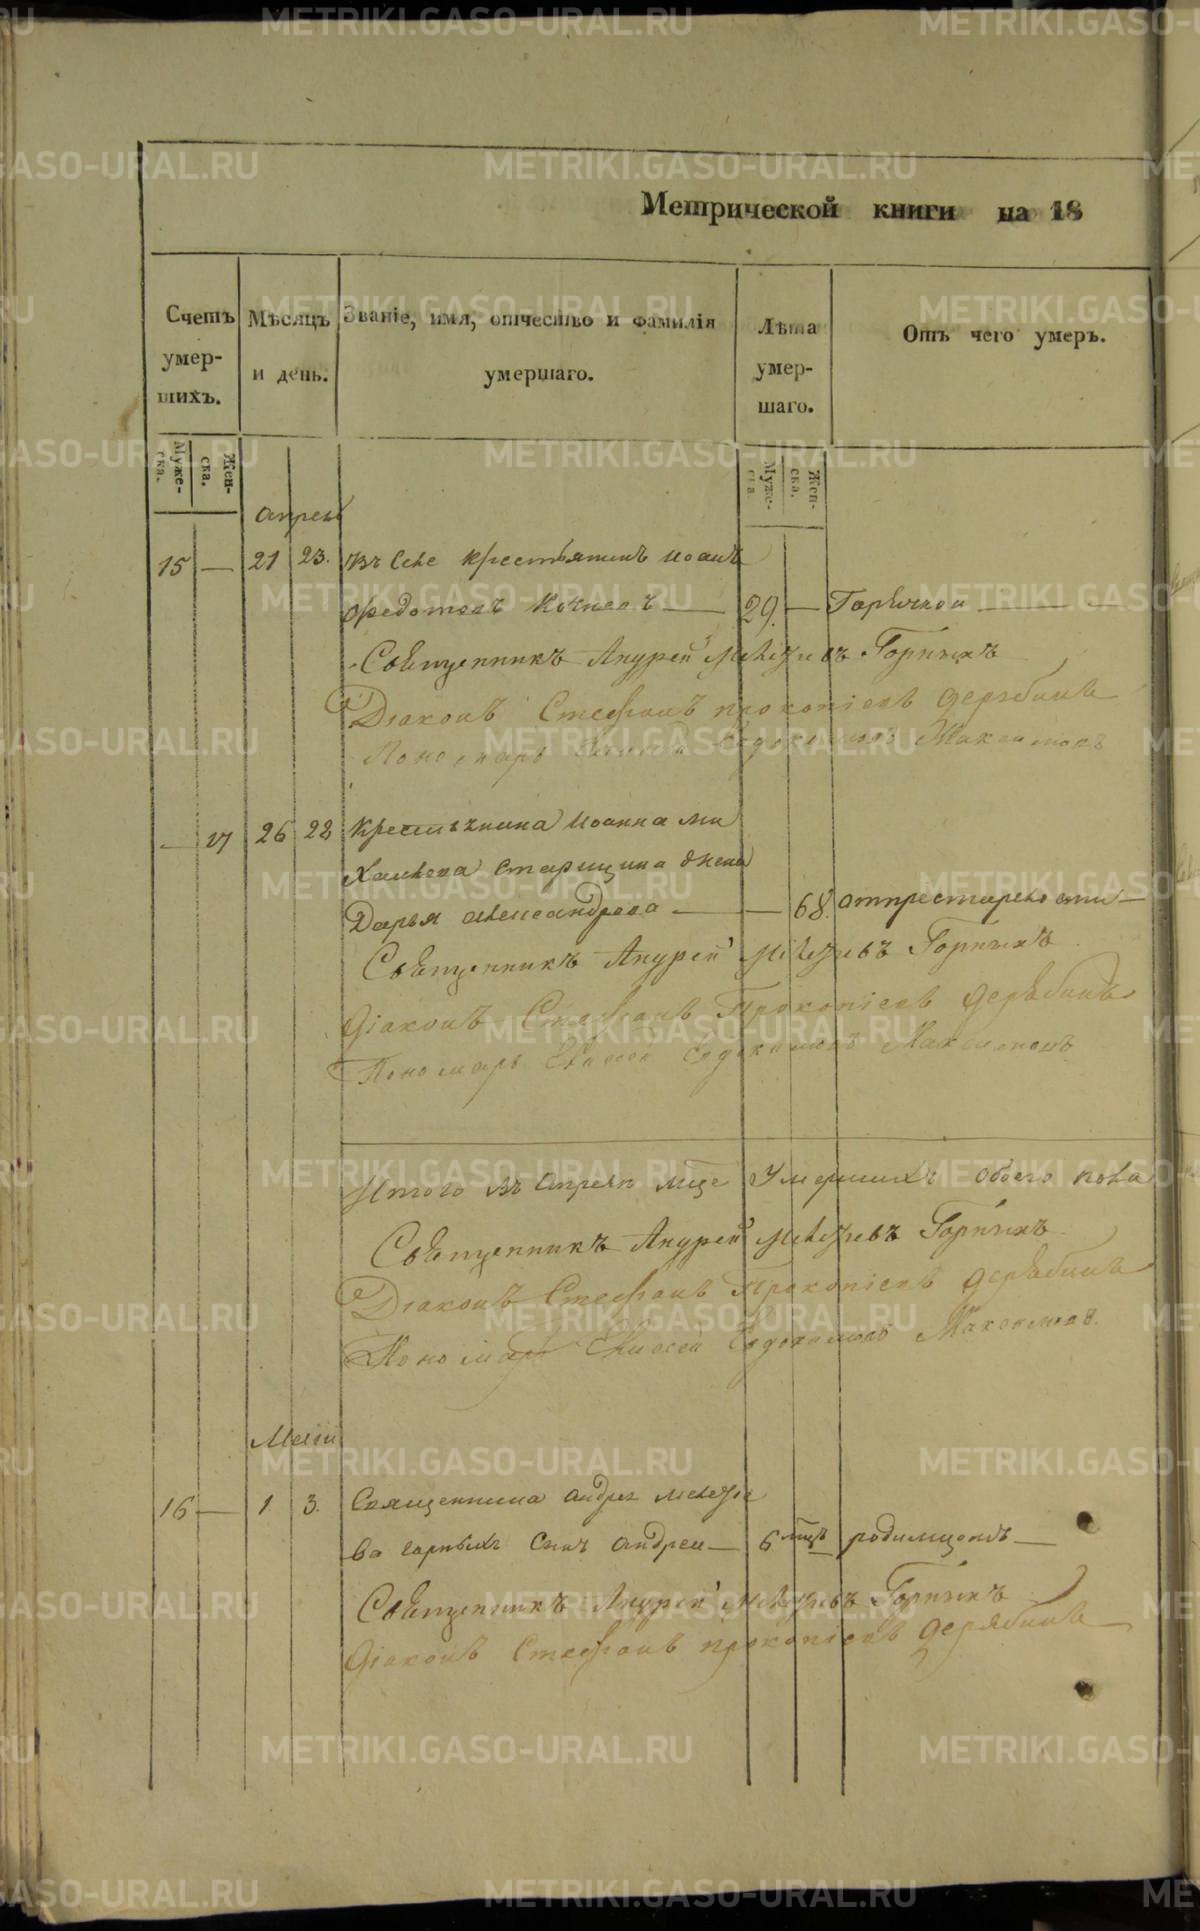 Метрической книги на 18
Счетъ умер-шихъ.
Мѣсяцъ и день.
Званіе, имя, отчество и фамилія умершаго.
Лѣта умер-шаго.
Отъ чего умеръ.
Муже-ска. Жен-ска.
Муже-ска. Жен-ска.
Апрель
15 — 21 23. Въ селе крестьянинъ Иоаннъ
Федотовъ 29. — Горячкой
Священникъ Андрей Горныхъ
Діаконъ Стефанъ Прокопіевъ Дерябинъ
Пономарь Елисей Евдокимовъ Максимовъ
— 17 26 28 Крестьянина Иоанна Ми
хайлова Старицина жена
Дарья Александрова — — 68. от престарелости
Священникъ Андрей Горныхъ
Діаконъ Стефанъ Прокопіевъ Дерябинъ
Пономарь Елисей Евдокимовъ Максимовъ
Итого въ Апреле мце умершихъ обоего пола
Священникъ Андрей Горныхъ
Діаконъ Стефанъ Прокопіевъ Дерябинъ
Пономарь Елисей Евдокимовъ Максимовъ
Маии
16 — 1. 3. Священника Андрея
ва Горныхъ сынъ Андрей — 6 мцъ родимцомъ —
Священникъ Андрей Горныхъ
Діаконъ Стефанъ Прокопіевъ Дерябинъ
METRIKI.GASO-URAL.RU